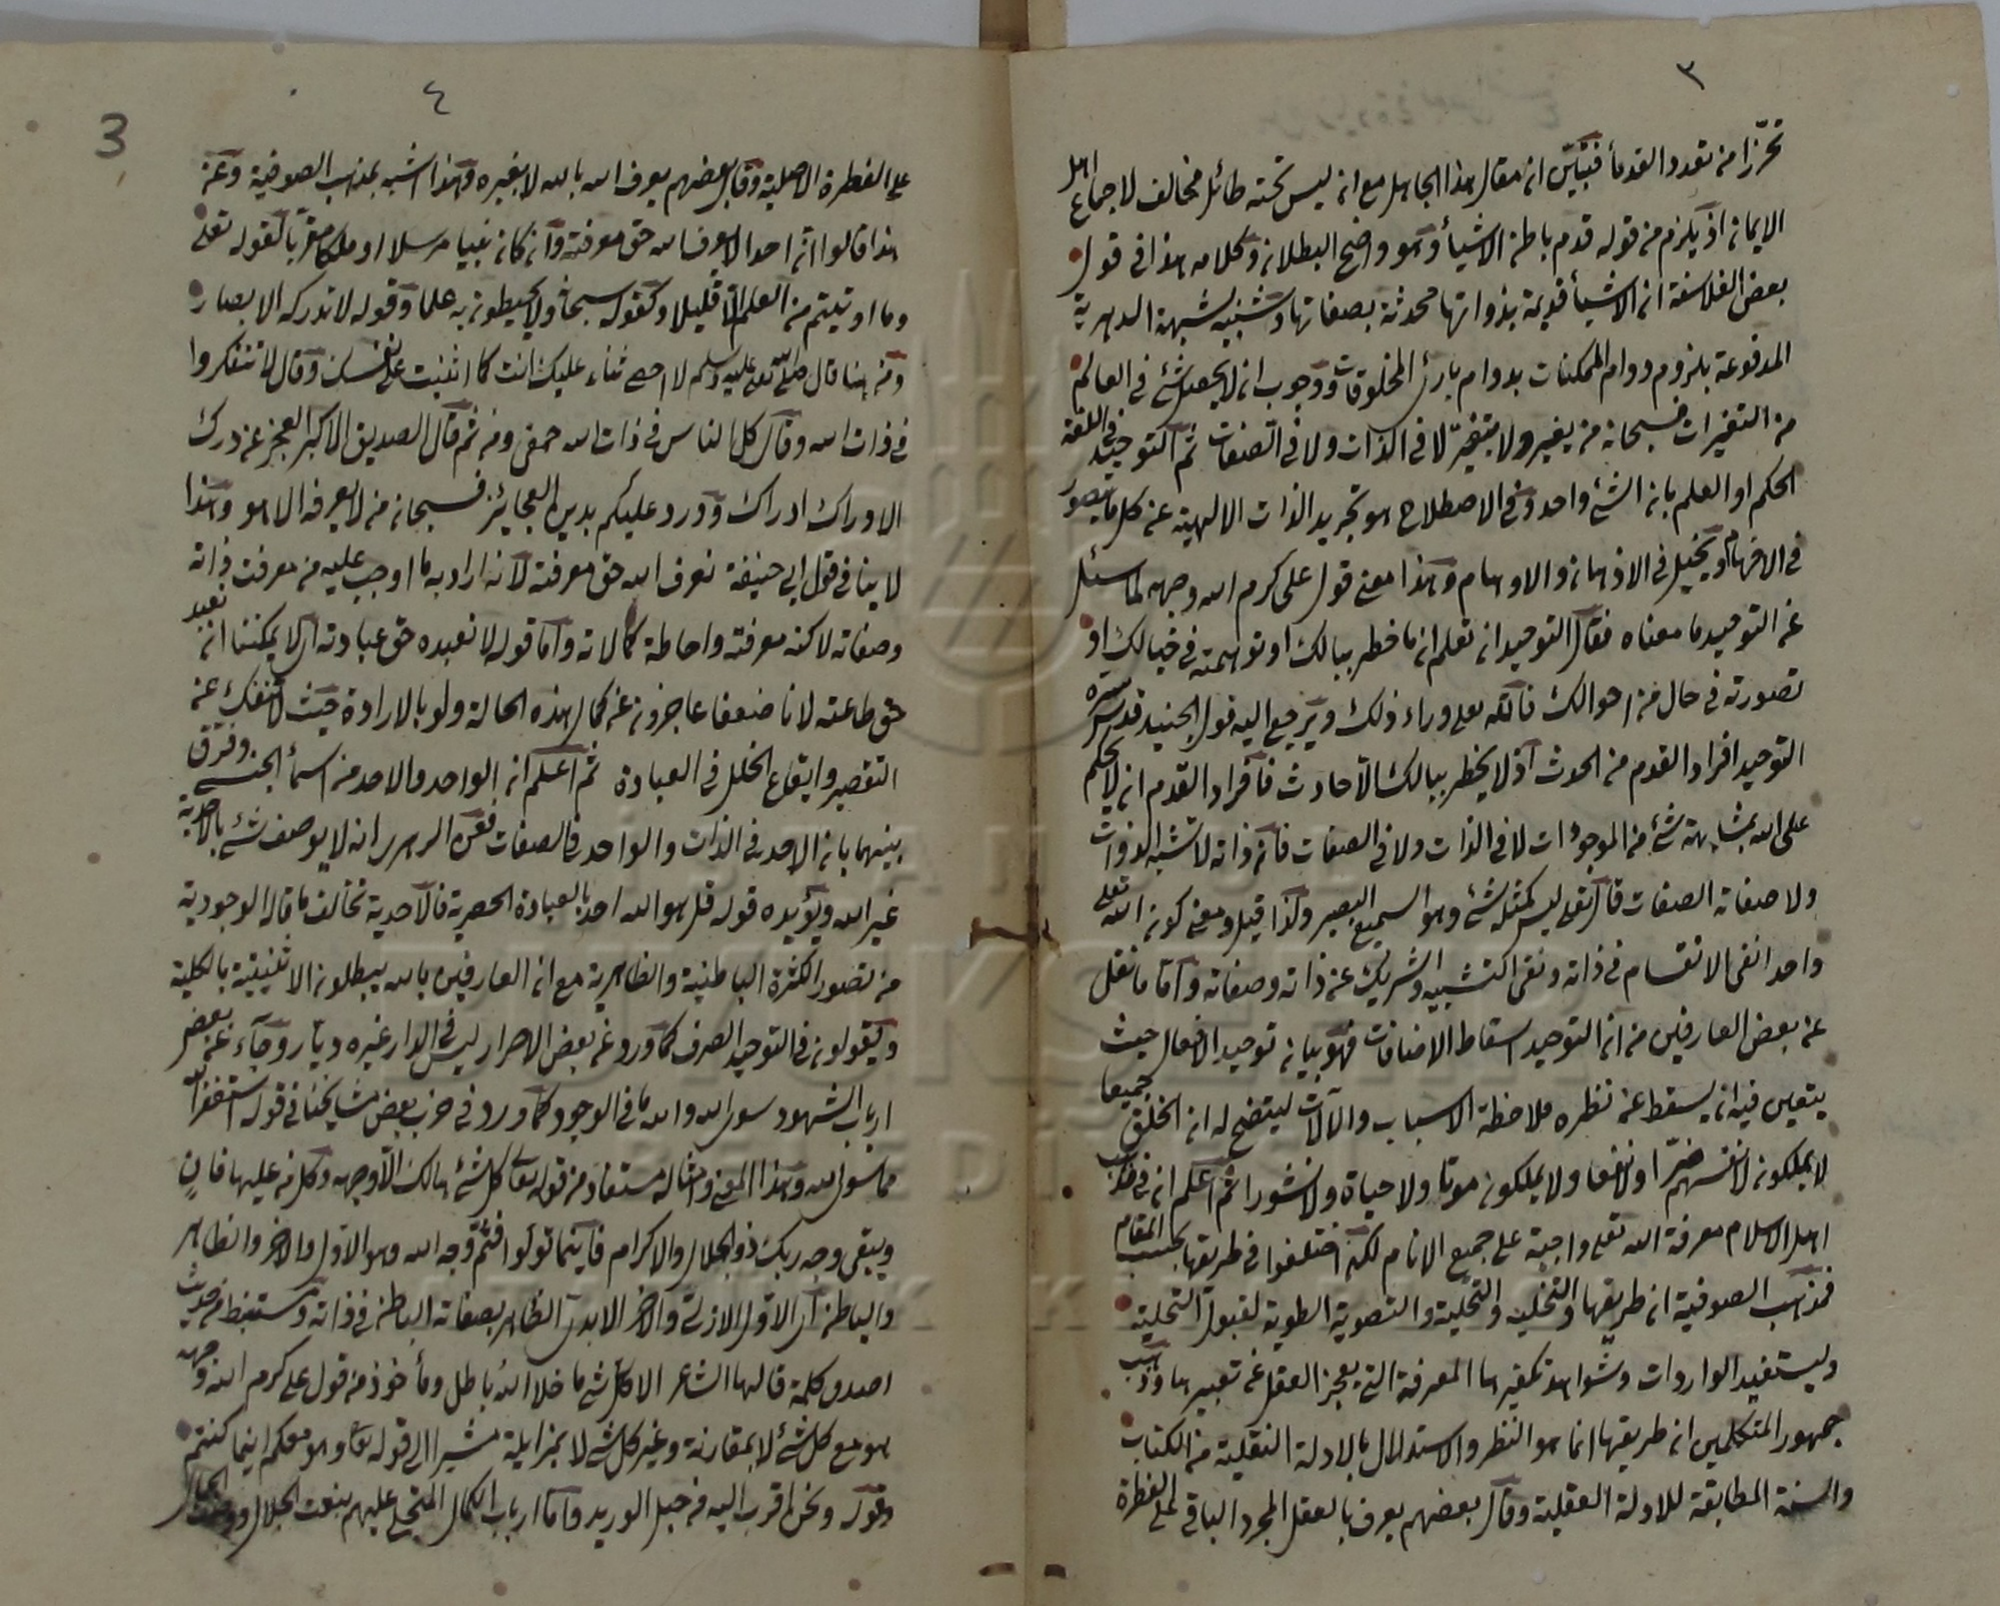 ٣
تحرزا من تعدد القدماء فتبين ان مقال هذا الجاهل مع انه ليس تحته طائل مخالف لاجماع اهل
الايمان اذ يلزم من قوله قدم باطن الاشياء وهو واضح البطلان وكلامه هذا في قول
بعض الفلاسفة ان الاشياء قديمة بذواتها محدثة بصفاتها وشبيه بشبهة الدهرية
المدفوعة بلزوم دوام الممكنات بدوام بارئ المخلوقات ووجوب ان لا يحصل شئ في العالم
من التغيرات فسبحان من يغير ولا يتغير لا في الذات ولا في الصفات ثم التوحيد في اللغة
الحكم او العلم بان الشئ واحد وفي الاصطلاح هو تجريد الذات الالهية عن كل ما يتصور
في الافهام او يخيل في الاذهان والاوهام وهذا معنى قول على كرم الله وجهه لما سئل
عن التوحيد ما معناه فقال التوحيد ان تعلم ان ما خطر ببالك او توهمته في خيالك او
تصورته في حال من احوالك فالله تعلى وراء ذلك ويرجع اليه قول الجنيد قدس سره
التوحيد افراد القدم من الحدث اذ لا يخطر ببالك الا حادث فافراد القدم ان لا يحكم
على الله بمشابهة شئ من الموجودات لا في الذات ولا في الصفات فان ذاته لا تشبه الذوات
ولا صفاته الصفات قال تعلى ليس كمثله شئ وهو السميع البصير وكذا قيل ومعنى كونه الله تعلى
واحدا نفى الانقسام في ذاته ونفى التشبيه والشريك عن ذاته وصفاته واما ما نقل
عن بعض العارفين من ان التوحيد اسقاط الاضافات فهو بيان توحيد الافعال حيث
يتعين فيه ان يسقط عن نظره ملاحظة الاسباب والآلات ليتضح له ان الخلق جميعا
لا يملكون لانفسهم ضرا ولا نفعا ولا يملكون موتا ولا حياة ولا نشورا ثم اعلم ان في مذهب
اهل الاسلام معرفة الله تعلى واجبة على جميع الانام لكن اختلفوا في طريقها بحسب المقام
فمذهب الصوفية ان طريقها التخلية والتحلية والتصوية الطوية لقبول التجلية
وليستفيد الواردات وشواهد المعرفة التي يعجز العقل عن تعبيرها ومذهب
جمهور المتكلمين ان طريقها انما هو النظر والاستدلال بالادلة النقلية من الكتاب
والسنة المطابقة للادلة العقلية وقال بعضهم يعرف بالعقل المجرد الباقي على الفطرة
٤
3
على الفطرة الاصلية وقال بعضهم يعرف الله بالله لا بغيره وهذا اشبه بمذهب الصوفية وعن
هذا قالوا ان احدا لا يعرف الله حق معرفته وان كان نبيا مرسلا او ملكا مقربا لقوله تعلى
وما اوتيتم من العلم الا قليلا وكقوله سبحانه ولا يحيطون به علما وقوله لا تدركه الابصار
ومن هنا قال صلى الله تعلى عليه وسلم لا احصى ثناء عليك انت كما اثنيت على نفسك وقال لا تتفكروا
في ذات الله وقال كل الناس في ذات الله حمقى ومن ثم قال الصديق الاكبر العجز عن درك
الادراك ادراك وورد عليكم بدين العجايز فسبحان من لا يعرفه الا هو وهذا
لا ينافي قول ابى حنيفة نعرف الله حق معرفته لانه اراد به ما اوجب عليه من معرفت ذاته
وصفاته لا كنه معرفته واحاطة كمالاته واما قوله لا نعبده حق عبادته اى لا يمكننا ان نعبد
حق طاعته لانا ضعفا عاجزون عن كمال هذه الحالة ولو بالارادة حيث لا ننفك عن
التقصير وايقاع الخلل في العبادة ثم اعلم ان الواحد والاحد من اسماء الحسنى وفرق
بينهما بان الاحد في الذات والواحد في الصفات فعن الزهرى انه لا يوصف شئ بالاحدية
غير الله ويؤيده قوله قل هو الله احد بالعبادة الحصرية فالاحدية تخالف ما قال الوجودية
من تصور الكثرة الباطنية والظاهرية مع ان العارفين بالله يبطلون الاثنينية بالكلية
ويقولون في التوحيد الصرف كما ورد عن بعض الاحرار ليس في الدار غيره ديار وجاء عن بعض
ارباب الشهود سوى الله والله ما في الوجود كما ورد في حزب بعض مشايخنا في قوله استغفر الله
مما سوى الله وهذا المعنى وامثاله مستفاد من قوله تعالى كل شئ هالك الا وجهه وكل من عليها فان
ويبقى وجه ربك ذو الجلال والاكرام فاينما تولوا فثم وجه الله وهو الاول والآخر والظاهر
والباطن اى الاول الازلى والآخر الابدى الظاهر بصفاته الباطن في ذاته ومستنبط من حديث
اصدق كلمة قالها الشاعر الا كل شئ ما خلا الله باطل ومأخوذ من قول على كرم الله وجهه
هو مع كل شئ لا بمقارنة وغير كل شئ لا بمزايلة مشيرا الى قوله تعا وهو معكم اينما كنتم
وقوله ونحن اقرب اليه من حبل الوريد واما ارباب الكمال المتجلى عليهم بنعت الجلال ووصف الجمال